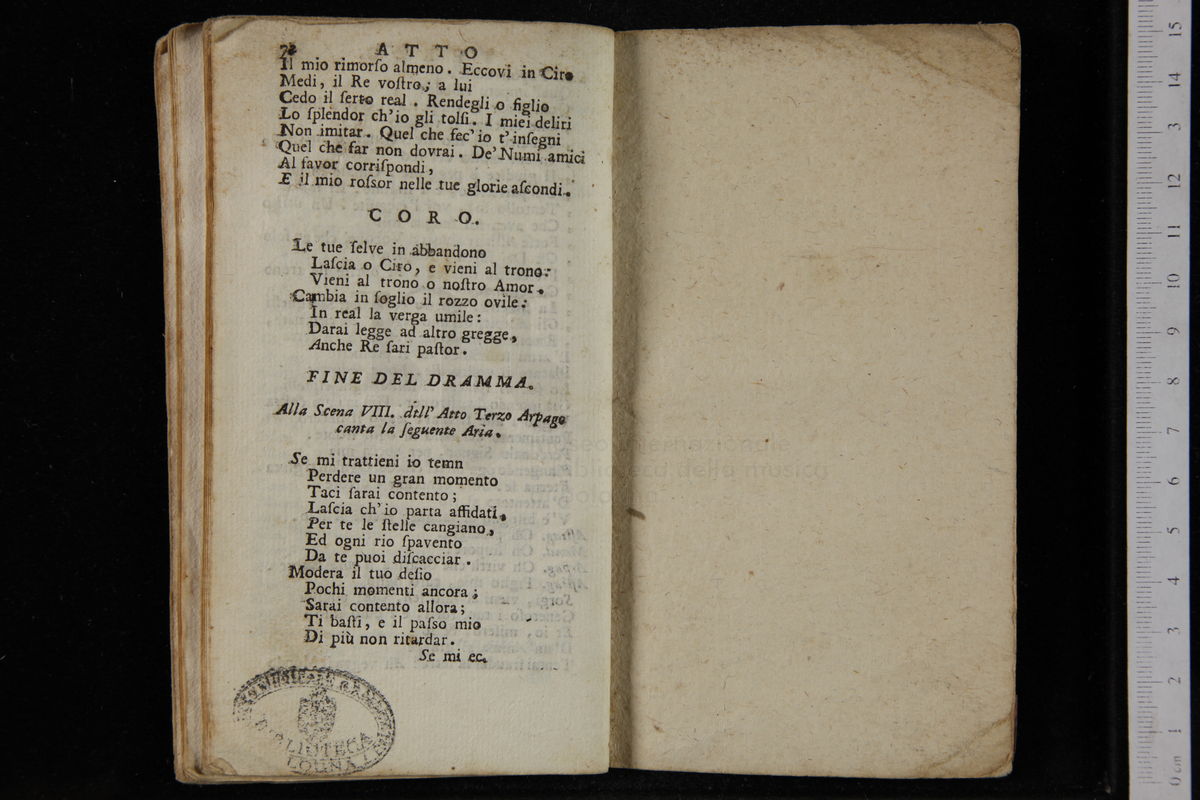 ATTO
Il mio rimorſo almeno. Eccovi in Ciro
Medi, il Re voſtro; a lui
Cedo il ſerto real. Rendegli o figlio
Lo ſplendor ch'io gli tolſi. I miei deliri
Non imitar. Quel che fec'io t'inſegni
Quel che far non dovrai. De' Numi amici
Al favor corriſpondi,
E il mio roſsor nelle tue glorie aſcondi.
CORO.
Le tue ſelve in abbandono
Laſcia o Ciro, e vieni al trono:
Vieni al trono o noſtro Amor.
Cambia in ſoglio il rozzo ovile:
In real la verga umile:
Darai legge ad altro gregge,
Anche Re ſari paſtor.
FINE DEL DRAMMA.
Alla Scena VIII. dell' Atto Terzo Arpago
canta la ſeguente Aria.
Se mi trattieni io temn
Perdere un gran momento
Taci ſarai contento;
Laſcia ch'io parta affidati,
Per te le ſtelle cangiano,
Ed ogni rio ſpavento
Da te puoi diſcacciar.
Modera il tuo deſio
Pochi momenti ancora;
Sarai contento allora;
Ti baſti, e il paſso mio
Di più non ritardar.
Se mi ec.
BIBLIOTECA
internazionale
biblioteca della musica
15
14
13
12
11
10
9
8
7
6
5
4
3
2
1
0 cm